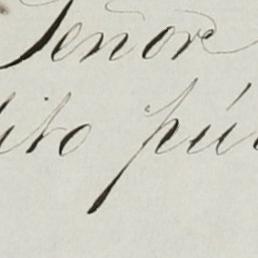 Señore
dito pú